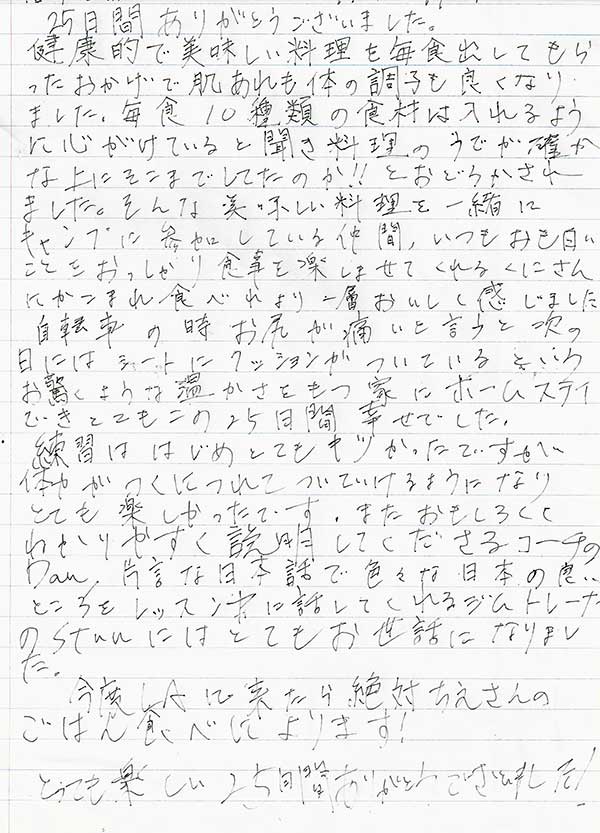 25日間ありがとうございました。
健康的で美味しい料理を毎食出してもら
ったおかげで肌あれも体の調子も良くなり
ました。毎食10種類の食材は入れるよう
に心がけていると聞き料理のうでが確か
な上にそこまでしてたのか!!とおどろかされ
ました。そんな美味しい料理を一緒に
キャンプに参加している仲間、いつもおも白い
ことをおっしゃり食事を楽しませてくれるくにさん
にかこまれ食べれより一層おいしく感じました
自転車の時お尻が痛いと言うと次の
日にはシートにクッションがついているという
お驚くような温かさをもつ家にホームステイ
できとてもこの25日間幸せでした。
練習ははじめとてもキツかったですがい
体力がつくにつれてついていけるようになり
とても楽しかったです。またおもしろくく
わかりやすく説明してくださるコーチの
Dan、片言な日本話で色々な日本の良い
ところをレッスン中に話してくれるジムトレーナ
のStanにはとてもお世話になりまし
た。
今度LAに来たら絶対ちえさんの
ごはん食べによります!
とっても楽しい25日間ありがとうございました!